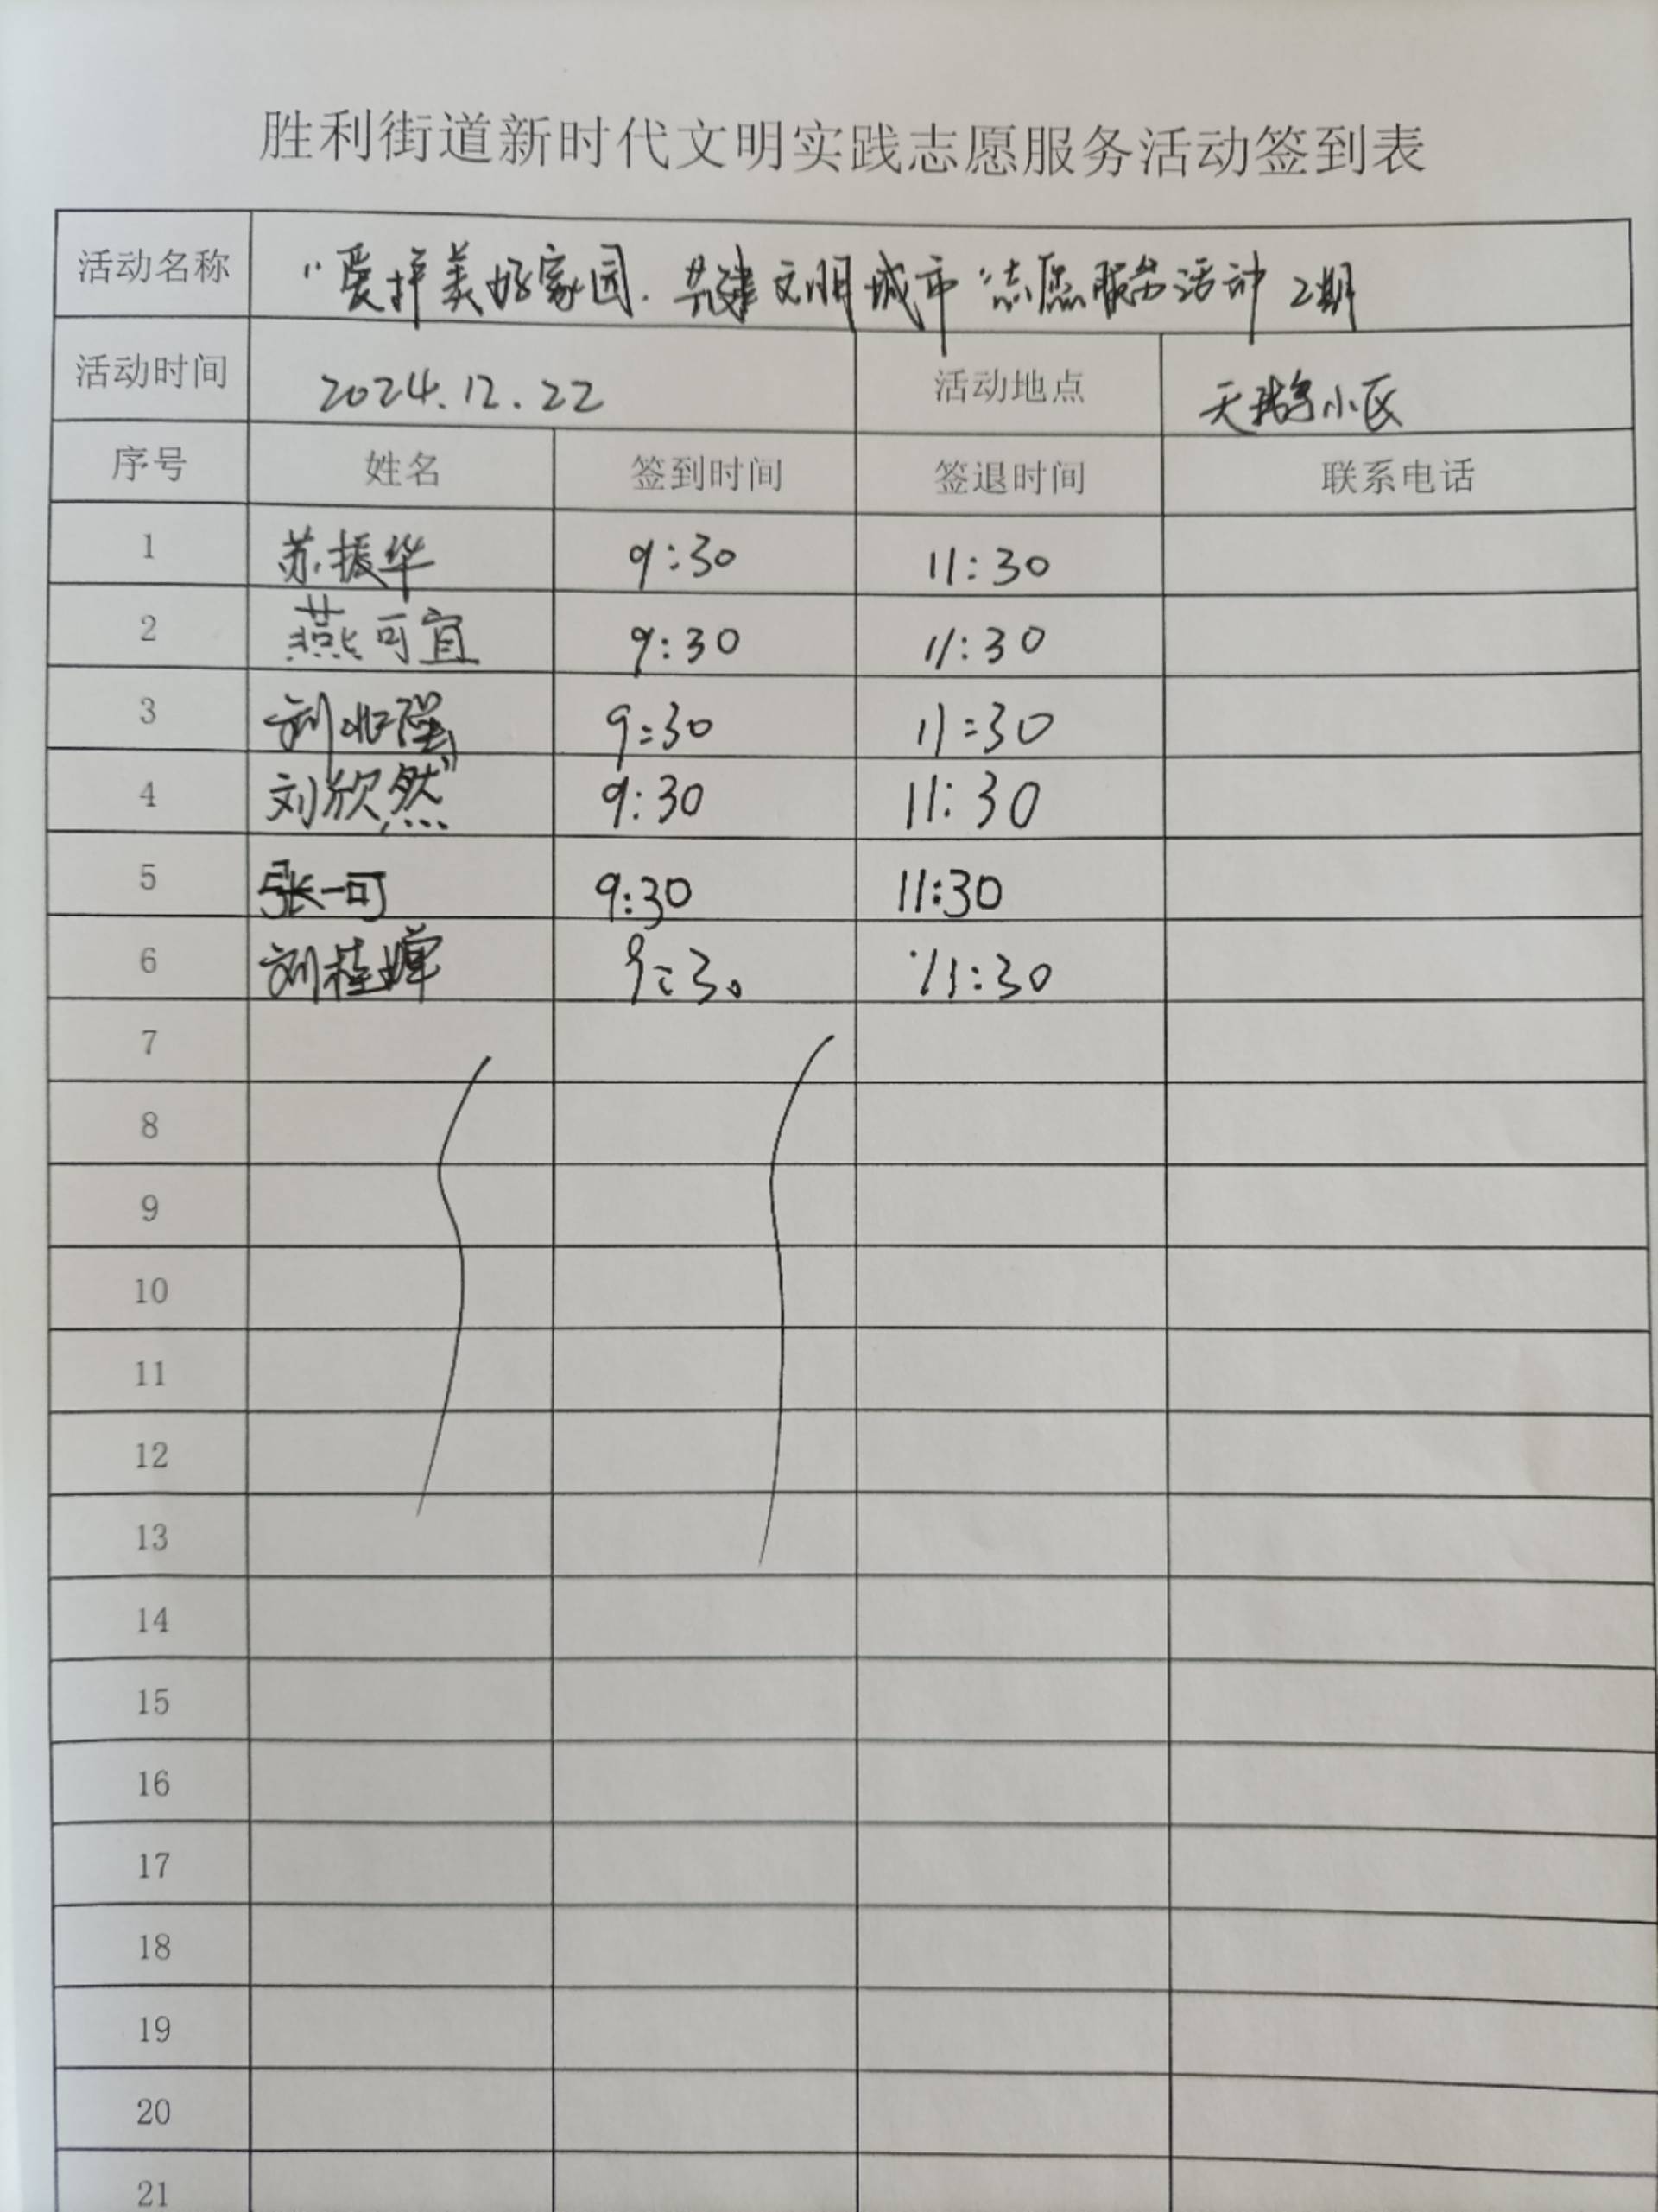 胜利街道新时代文明实践志愿服务活动签到表
活动名称 "爱护美好家园.共建文明城市"志愿服务活动2期
活动时间 2024.12.22 活动地点 天鹅小区
序号 姓名 签到时间 签退时间 联系电话
1 苏振华 9:30 11:30
2 燕可宜 9:30 11:30
3 刘 9:30 11:30
4 刘欣然 9:30 11:30
5 张一可 9:30 11:30
6 刘桂婵 9:30 11:30
7
8
9
10
11
12
13
14
15
16
17
18
19
20
21